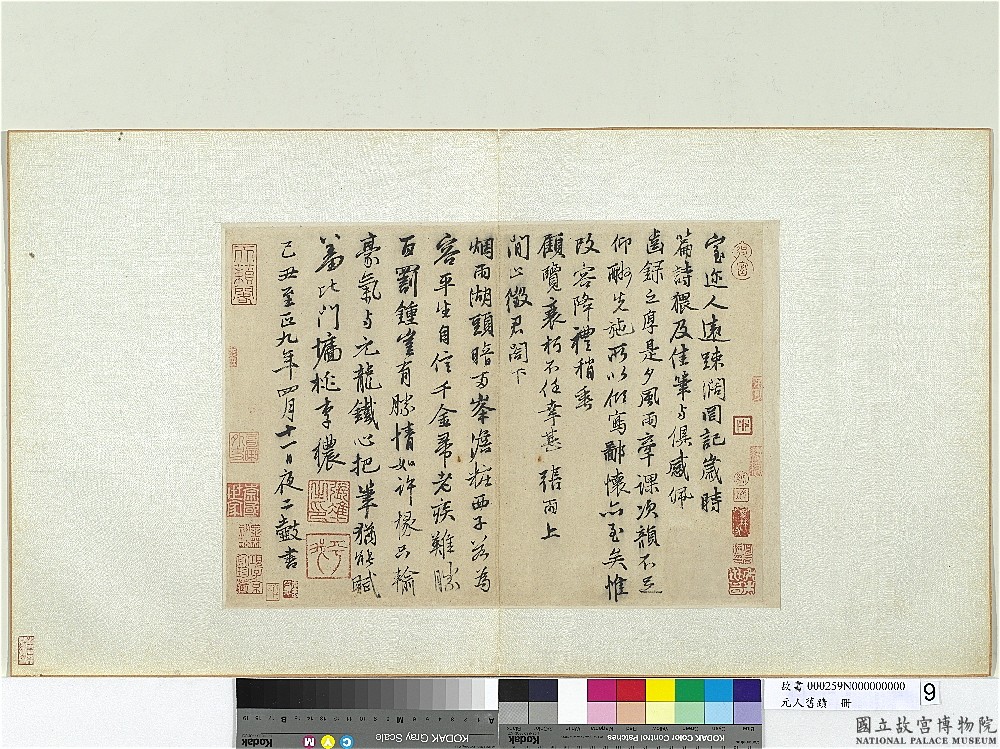 室迩人遠踈闊罔記歲時
篇詩猥及佳筆与俱感佩
齒録之厚是夕風雨牽課次韻不足
仰酬先施所以傾寫鄙懷亦至矣惟
改容降禮稍垂
顧覽衰朽不任幸甚 張雨上
閒止徵君閤下
烟雨湖頭暗两峯澹粧西子若為
容平生自信千金帚老疾難勝
百罰鍾豈有勝情如許椽只輸
豪氣与元龍鐵心把筆猶能賦
羞比門墻桃李穠
己丑至正九年四月十一日夜二鼓書
故書 000259N000000000
元人舊蹟 冊
9
Kodak
KODAK Gray Scale
Kodak
KODAK Color Control Patches
國立故宮博物院
NATIONAL PALACE MUSEUM